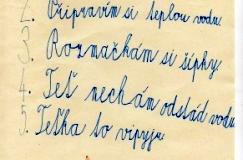 2. Připravím si teplou vodu.
3. Rozmačkám si šípky.
4. Teť nechám odstád vodu
5. Teťka to vipyju.